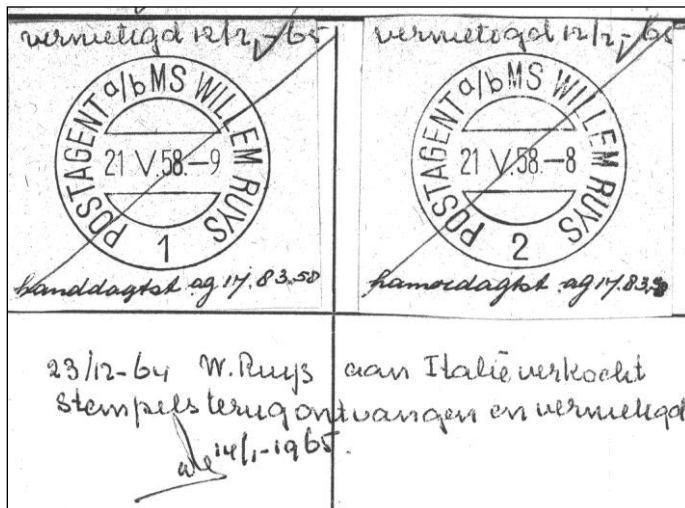 vernietigd 12/2,-65
POSTAGENT a/b MS WILLEM RUYS
21 V.58.–9
1
handdagtst ag 17.83.58
vernietigd 12/2,-65
POSTAGENT a/b MS WILLEM RUYS
21 V.58.–8
2
hamerdagtst ag 17.83.58
23/12-64 W. Ruys aan Italië verkocht
stempels terug ontvangen en vernietigd
14/1-1965.